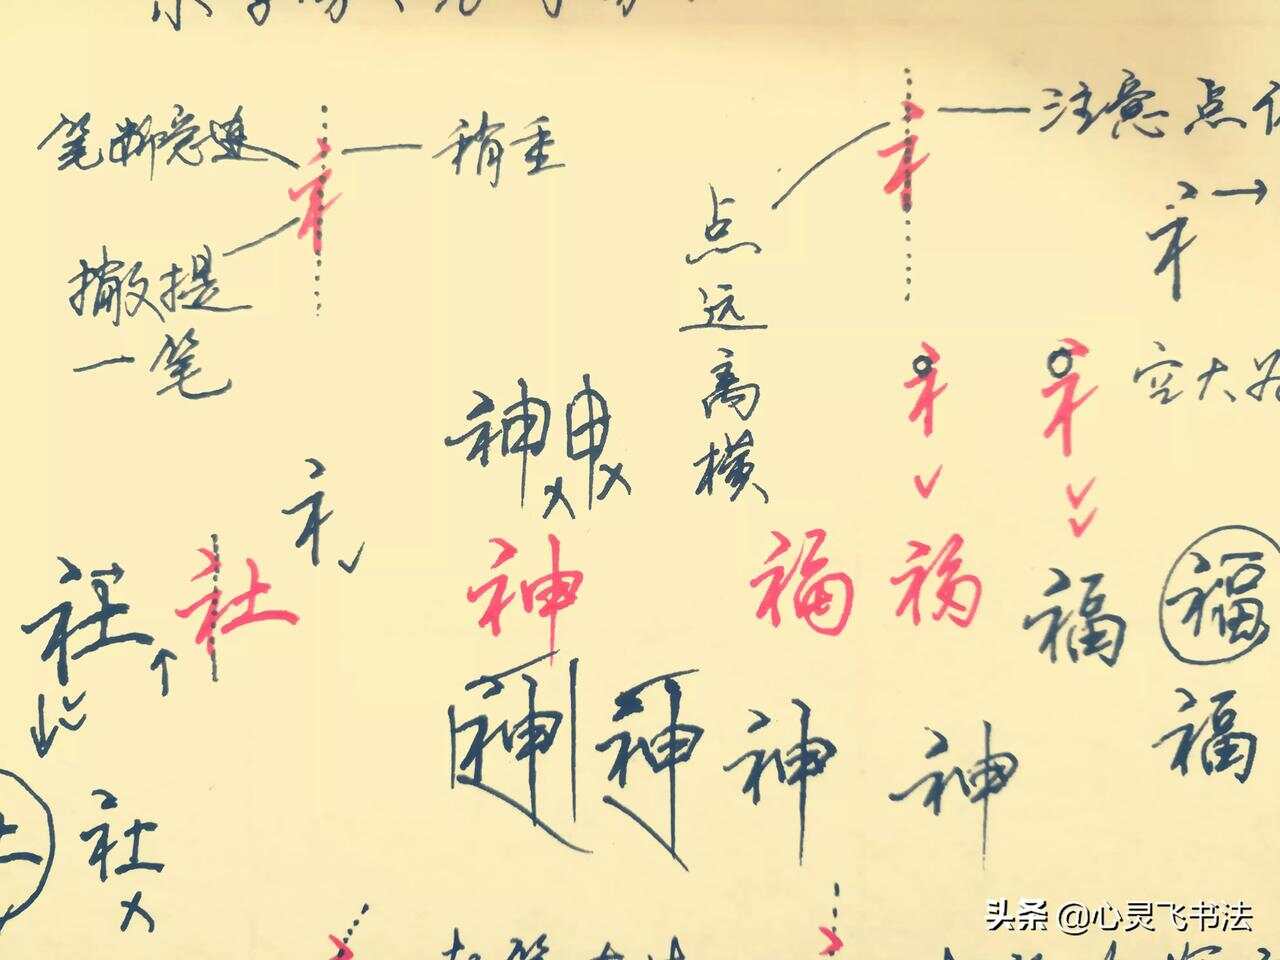 笔断意连
礻
稍重
撇提
一笔
礻
点远高横
注意点
礻
礻
礻
空大
神申
礻
社
社
神
福
福
福
福
神
神
神
神
福
社
头条 @心灵飞书法